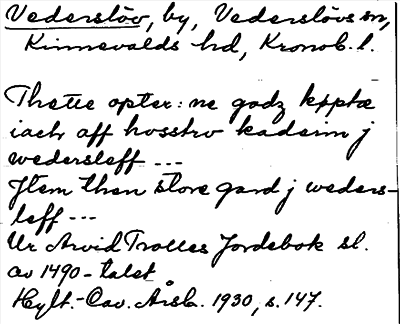 Vederslöv, by, Vederslövs sn,
Kinnevalds hd, Kronob. l.
Thette epter: ne godz køptæ
iach aff hosstrv kadrinn j
wedersleff ---
Jtem then store gard j weders-
leff ---
Ur Arvid Trolles Jordebok sl.
av 1490-talet
Hylt.-Cav. Årsb. 1930, s. 147.